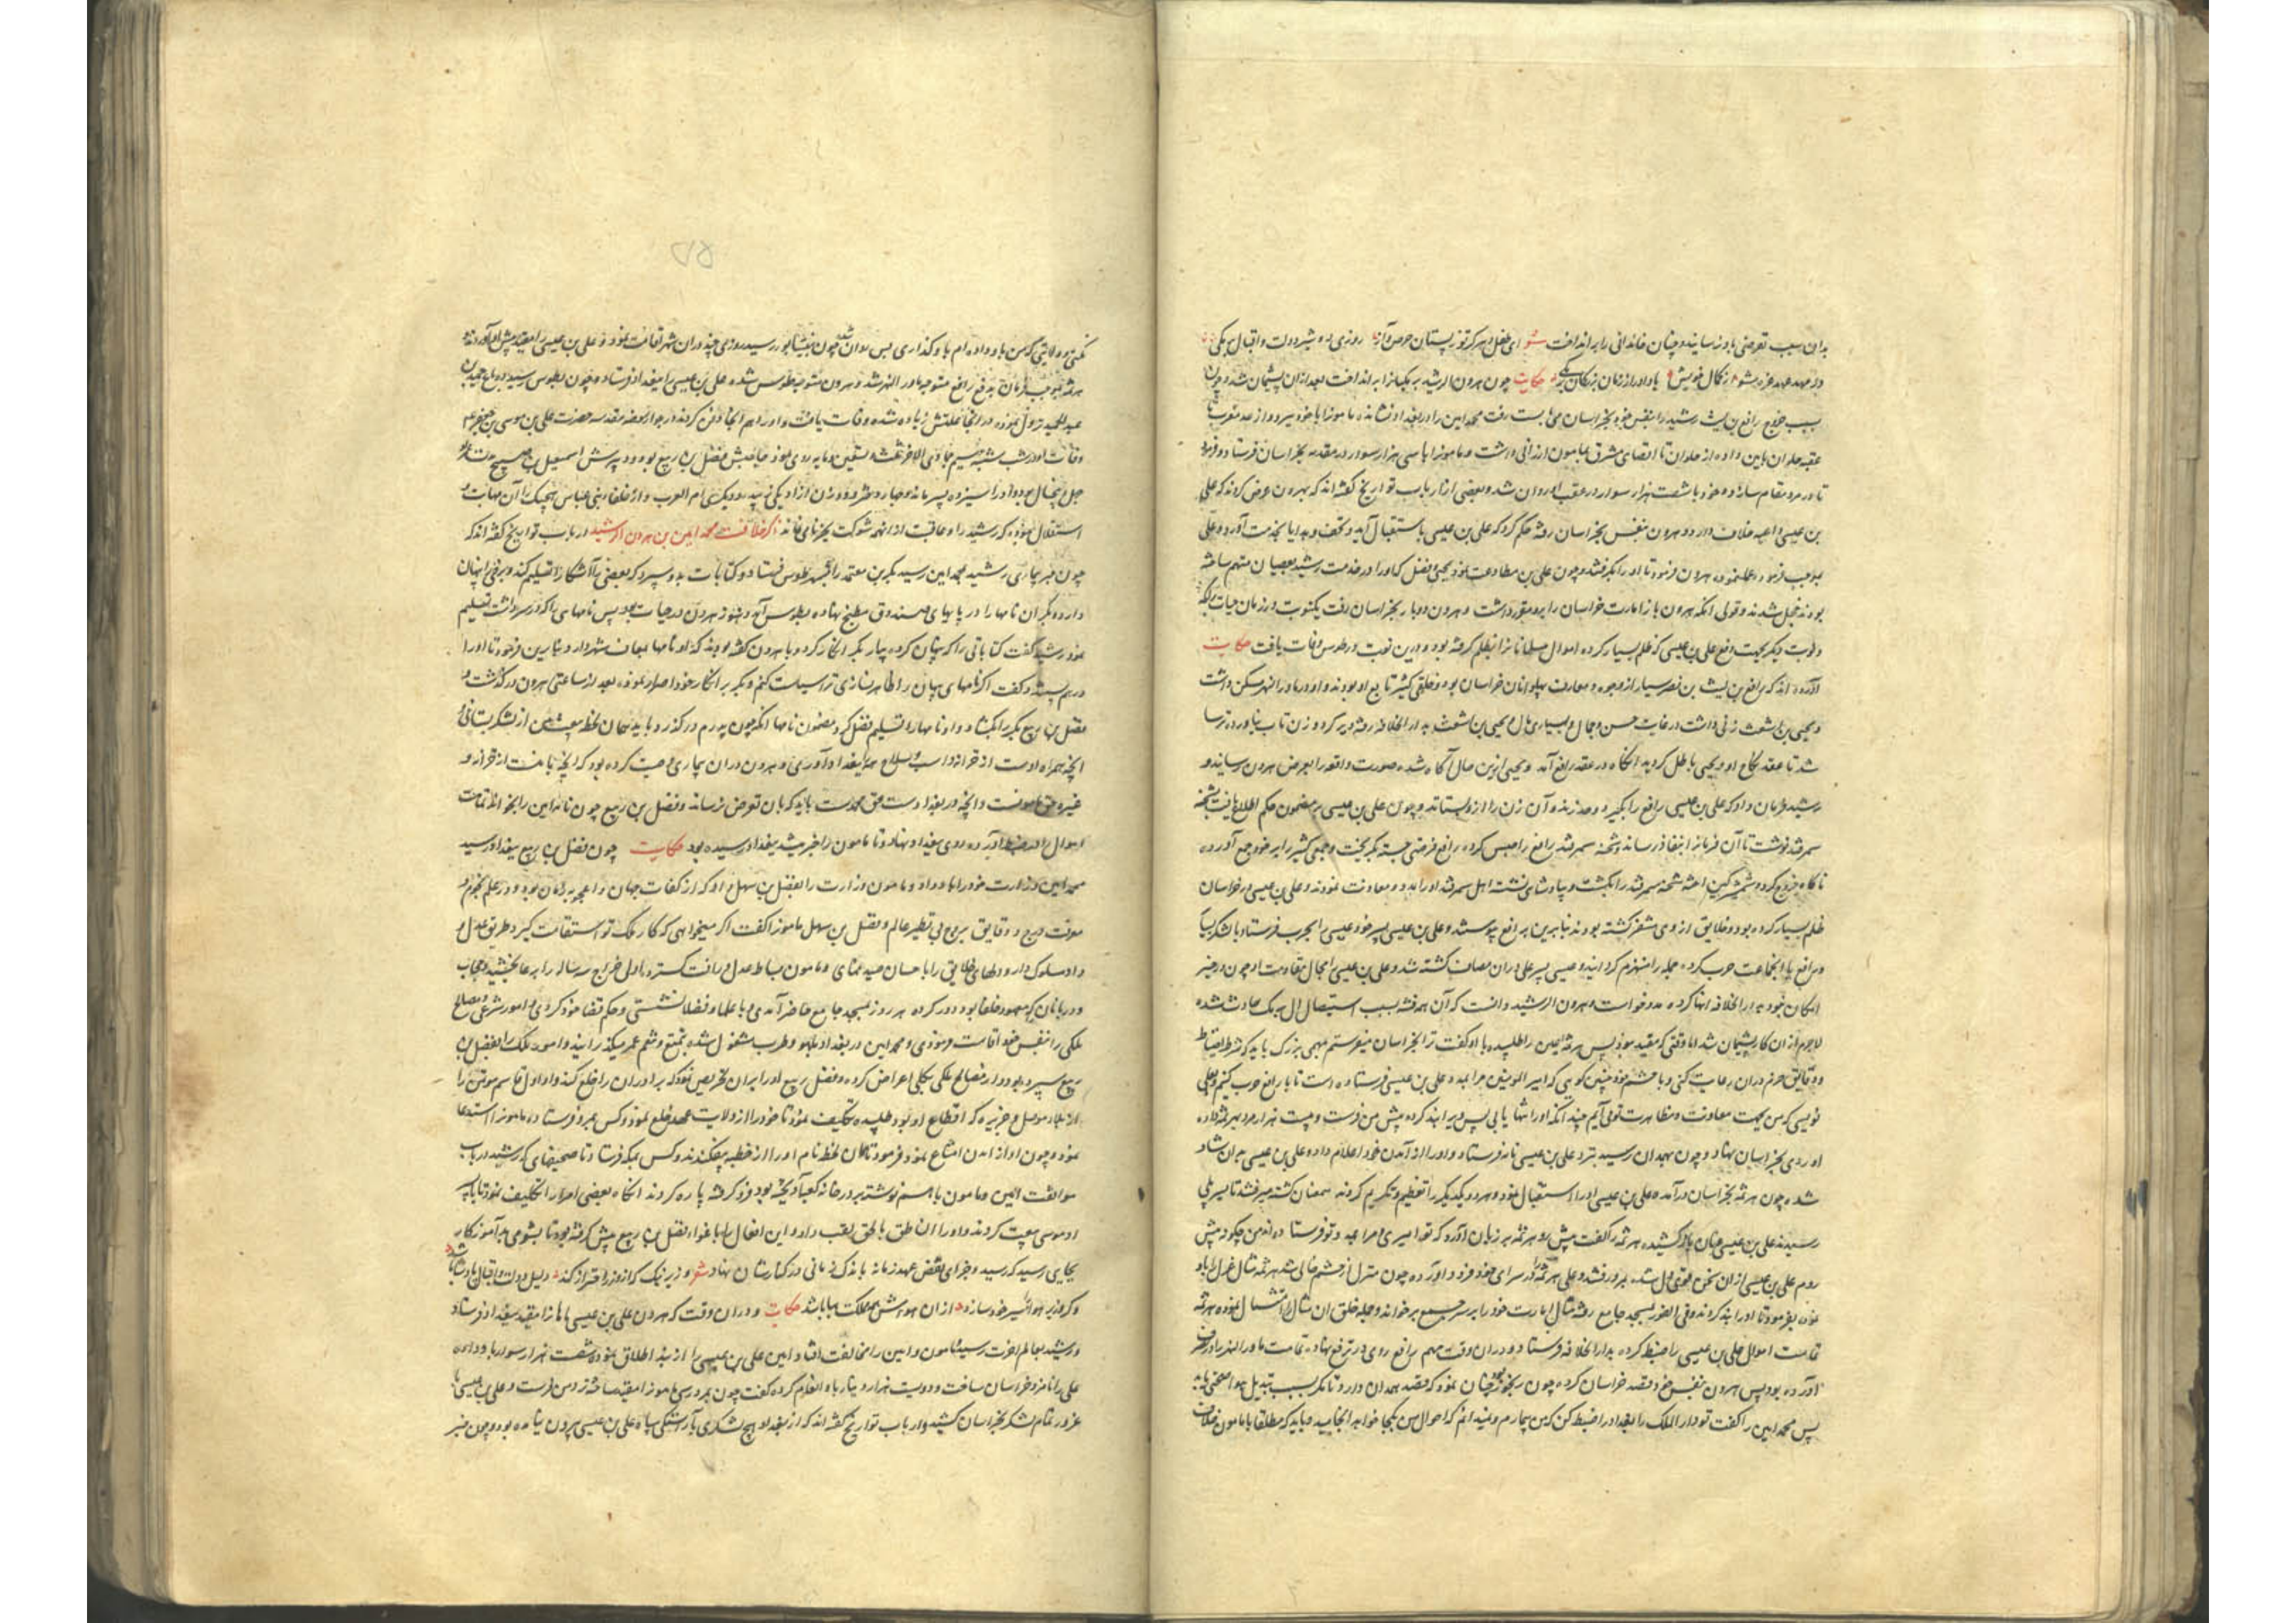 بدان سبب تعرضی بدو نرسانید و چنان خاندانی را برانداخت شعر ای طفل دهر گر تو ز پستان حرص و آز روزی دو شیر دولت و اقبال بر مکی
در مهد عهد غره مشو از کمال خویش یاد آور از زمان بزرگان برمکی حکایت چون هرون الرشید برمکیانرا برانداخت بعد از آن پشیمان شد و چون
بسبب خروج رافع بن لیث رشید را بنفس خود بخراسان می بایست رفت محمد امین را در بغداد نشانده مامونرا با خود ببرد و از حد مغرب تا
عقبه حلوان بامین داده از حلوان تا اقصای مشرق بمامون ارزانی داشت و مامونرا با سی هزار سوار در مقدمه بخراسان فرستاد و فرمود
تا در مرو مقام سازد و خود با شصت هزار سوار در عقب او روان شد و بعضی از ارباب تواریخ گفته اند که بهرون عرض کردند که علی
بن عیسی داعیه خلاف دارد و هرون بنفس بخراسان رفته حکم کرد که علی بن عیسی باستقبال آید و تحف و هدایا بخدمت آورد و علی
بموجب فرموده عمل نمود هرون فرمود تا او را بگرفتند و چون علی بن مطاوعت نمود یحیی و فضل که او را در خدمت رشید بعصیان متهم ساخته
بودند خجل شدند و قولی آنکه هرون باز امارت خراسان را برو مقرر داشت و هرون دو بار بخراسان رفت یکنوبت در زمان حیات برامکه
و نوبت دیگر بجهت دفع علی بن عیسی که ظلم بسیار کرده اموال مسلمانانرا بظلم گرفته بود و درین نوبت در طوس وفات یافت حکایت
آورده اند که رافع بن لیث بن نصر سیار از وجوه و معارف پهلوانان خراسان بود و خلقی کثیر تابع او بودند و او در ماوراالنهر مسکن داشت
و یحیی بن اشعث زنی داشت در غایت حسن و جمال و بسیاری مال و یحیی بن اشعث بدار الخلافه رفته دیر کرد و زن تاب نیاورده ترسا
شد تا عقد نکاح او و یحیی باطل گردید آنگاه در عقد رافع آمد و یحیی ازین حال آگاه شده صورت واقعه را بعرض هرون رسانید و
رشید فرمان داد که علی بن عیسی رافع را بگیرد و حد زند و آن زن را ازو بستاند و چون علی بن عیسی بر مضمون حکم اطلاع یافت بشحنه
سمرقند نوشت تا آن فرمانرا بنفاذ رساند و شحنه سمرقند رافع را حبس کرده رافع فرصتی جسته بگریخت و جمعی کثیر را بر خود جمع آورده
ناگاه خروج کرده شمشیر کین آخته شحنه سمرقند را بکشت و بپادشاهی نشسته اهل سمرقند او را مدد و معاونت نمودند و علی بن عیسی در خراسان
ظلم بسیار کرده بود و خلایق از وی متنفر گشته بودند بنابرین برافع پیوستند و علی بن عیسی پسر خود عیسی را بحرب فرستاد با لشکر بسیار
و رافع با آنجماعت حرب کرده جمله را منهزم گردانید و عیسی پسر علی دران مصاف کشته شد و علی بن عیسی را مجال مقاومت او چون در حیز
امکان نبود بدار الخلافه انها کرده مدد خواست و هرون الرشید دانست که آن همه فتنه بسبب استیصال آل برمک حادث شده
لاجرم از ان کار پشیمان شد اما وقتی که مفید نبود پس هرثمه اعین را طلبیده با او گفت ترا بخراسان میفرستم مهمی بزرگ باید که شرط احتیاط
و دقایق حزم دران رعایت کنی و با حشم خود چنین گویی که امیر المومنین مرا بمدد علی بن عیسی فرستاده است تا با رافع حرب کنیم و بعلی
نویسی که من بجهت معاونت و مظاهرت تو می آیم چندانکه او را تنها یابی پس ویرا بند کرده پیش من فرست و بیست هزار مرد بهرثمه داده
او روی بخراسان نهاد و چون بهمدان رسید بنزد علی بن عیسی نامه فرستاد و او را از آمدن خود اعلام داده علی بن عیسی بدان شاد
شده چون هرثمه بخراسان درآمده علی بن عیسی او را استقبال نمود و هر دو یکدیگر را تعظیم و تکریم کردند همعنان گشته میرفتند تا بسر پلی
رسیدند علی بن عیسی عنان باز کشیده هرثمه را گفت پیش رو هرثمه بر زبان آورد که تو امیری و مرا بمدد تو فرستاده اند من چگونه پیش
روم علی بن عیسی از ان سخن قوی دل شده برو رفتند و علی هرثمه را در سرای خود فرود آورده چون منزل از حشم خالی شد هرثمه مثال عزل را باو
نموده بفرمود تا او را بند کردند و فی الفور بمسجد جامع رفته مثال امارت خود را بر سر جمع برخواند و جمله خلق ان مثال را امتثال نموده هرثمه
تمامت اموال علی بن عیسی را ضبط کرده بدار الخلافه فرستاد و دران وقت مهم رافع روی در ترفع نهاده تمامت ماوراالنهر را در تصرف
آورده بود پس هرون بنفس خود قصد خراسان کرده چون رنجور بود چنان نمود که قصد همدان دارد تا مگر بسبب تبدیل هوا صحتی یابد
پس محمد امین را گفت تو دار الملک را بغداد را ضبط کن که من بیمارم و نمیدانم که احوال من بکجا خواهد انجامید و باید که مطلقا با مامون خلاف
نکنی و ولایتی که من باو داده ام باو گذاری پس روان شد و چون بنیشابور رسید روزی چند دران شهر اقامت نمود و علی بن عیسی را مقید پیش او آوردند و
هرثمه بموجب فرمان بدفع رافع متوجه ماوراالنهر شد و هرون متوجه طوس شده علی بن عیسی را ببغداد فرستاد و چون بطوس رسید بباغ حمید بن
عبد الحمید نزول نموده در آنجا علتش زیاده شده وفات یافت و او را هم آنجا دفن کردند در جوار روضه مقدسه حضرت علی بن موسی بن جعفر ع
وفات او در شب شنبه سیم جمادی الاخر ثلث و تسعین و مایه روی نمود حاجبش فضل بن ربیع بود و پرش اسمعیل بن صبیح مدت عمر
چهل و پنجسال بود و او را سیزده پسر ماند و چهارده دختر و زن آزاد یکی زبیده و دیگری ام العرب و از خلفا بنی عباس هیچیک را آن مهابت و
استقلال نبوده که رشید را و عاقبت از انهمه شوکت بجز نامی نماند ذکر خلافت محمد امین بن هرون الرشید ارباب تواریخ گفته اند که
چون خبر بیماری رشید بمحمد امین رسید بکر بن معتمد را بشهر طوس فرستاد و کتابات بدو سپرد که بعضی را آشکارا تسلیم کند و برخی را پنهان
دارد و بکر آن نامها را در پایهای صندوق مطبخ نهاده بطوس آمد و هنوز هرون در حیات بود پس نامهای را که در سر داشت تسلیم
نمود رشید گفت کتاباتی را که پنهان کرده بیار بکر انکار کرد و با هرون گفته بودند که او نامها بهمان شهر دارد و بنابرین فرمود تا او را
در هم بستند و گفت اگر نامهای پنهان را ظاهر نسازی ترا سیاست کنم و بکر بر انکار خود اصرار نموده بعد از ساعتی هرون در گذشت و
فضل بن ربیع بکر را بگشاد و او نامها را تسلیم فضل کرد مضمون نامها آنکه چون پدرم در گذرد باید همان لحظه بیعت من از لشکر بستانی و
آنچه همراه اوست از خزانه و اسب و سلاح همه ببغداد آوری و هرون دران بیماری وصیت کرده بود که آنچه با منست از خزانه و
غیره حق مامونست و آنچه در بغداد ست حق محمدست باید که بان تعرض نرساند و فضل بن ربیع چون نامه امین را بخواند تمامت
اموال را در ضبط آورده روی ببغداد نهاد و تا مامون را خبر میشد ببغداد رسیده بود حکایت چون فضل بن ربیع ببغداد رسید
محمد امین وزارت خود را باو داد و مامون وزارت را بفضل بن سهل داد که از کفات جهان و اعجوبه زمان بود و در علم نجوم و
معرفت درج و دقایق بروج بی نظیر عالم و فضل بن سهل مامونرا گفت اگر میخواهی که کار ملک تو استقامت گیرد طریق عدل و
داد مسلوک دار و دلهای خلایق را باحسان صید نمای و مامون بساط عدل و رافت گسترده اول خراج سه ساله را بر عامه بخشید و حجاب
و دربانان که معهود خلفا بود دور کرده هر روز بمسجد جامع حاضر آمدی و با علما و فضلا نشستی و حکم قضا خود کردی و امور شرعی و مصالح
ملکی را بنفس خود اقامت فرمودی و محمد امین در بغداد بلهو و طرب مشغول شده بتمتع و تنعم عمر میگذرانید و امور ملک را بفضل بن
ربیع سپرده بود و از مصالح ملکی بکلی اعراض کرده و فضل ربیع او را بران تحریص نمود که برادران را خلع کند و او اول قاسم موتمن را
از بلاد موصل و جزیره که اقطاع او بود طلبیده تکلیف نمود تا خود را از ولایت عهد خلع نمود و کس بمرو فرستاده مامونرا استدعا
نمود و چون او از امدن امتناع نمود فرمود تا همان لحظه نام او را از خطبه بیفکندند و کس بمکه فرستاد تا صحیفهای که رشید در باب
موافقت امین و مامون با هم نوشته بر در خانه کعبه آویخته بود فرو گرفته پاره کردند آنگاه بعضی احرار را تکلیف نمود تا با پسر
او موسی بیعت کردند و او را الناطق بالحق لقب داد و این افعال را باغواء فضل بن ربیع پیش گرفته بود تا بشومی بدآموز کار
بجایی رسید که رسید و جزای نقض عهد زمانه باندک زمانی در کنارشان نهاد شعر وزیر نیک که از وزر احتراز کند دلیل دولت و اقبال پادشا باشد
وگر وزیر هوا اسیر خود سازد از ان هواش همه مملکت هبا باشد حکایت و دران وقت که هرون علی بن عیسی ماهان را مقید ببغداد فرستاد
و رشید بعالم آخرت رسید مامون و امین را مخالفت افتاد امین علی بن عیسی را از بند اطلاق نموده شصت هزار سوار باو داده
علی را نامزد خراسان ساخت و دویست هزار دینار باو انعام کرده گفت چون بمرو رسی مامونرا مقید ساخته نزد من فرست و علی بن عیسی با
غرور تمام لشکر بخراسان کشید و ارباب تواریخ گفته اند که از بغداد هیچ لشکری بآراستگی سپاه علی بن عیسی بیرون نیامده بود و چون خبر